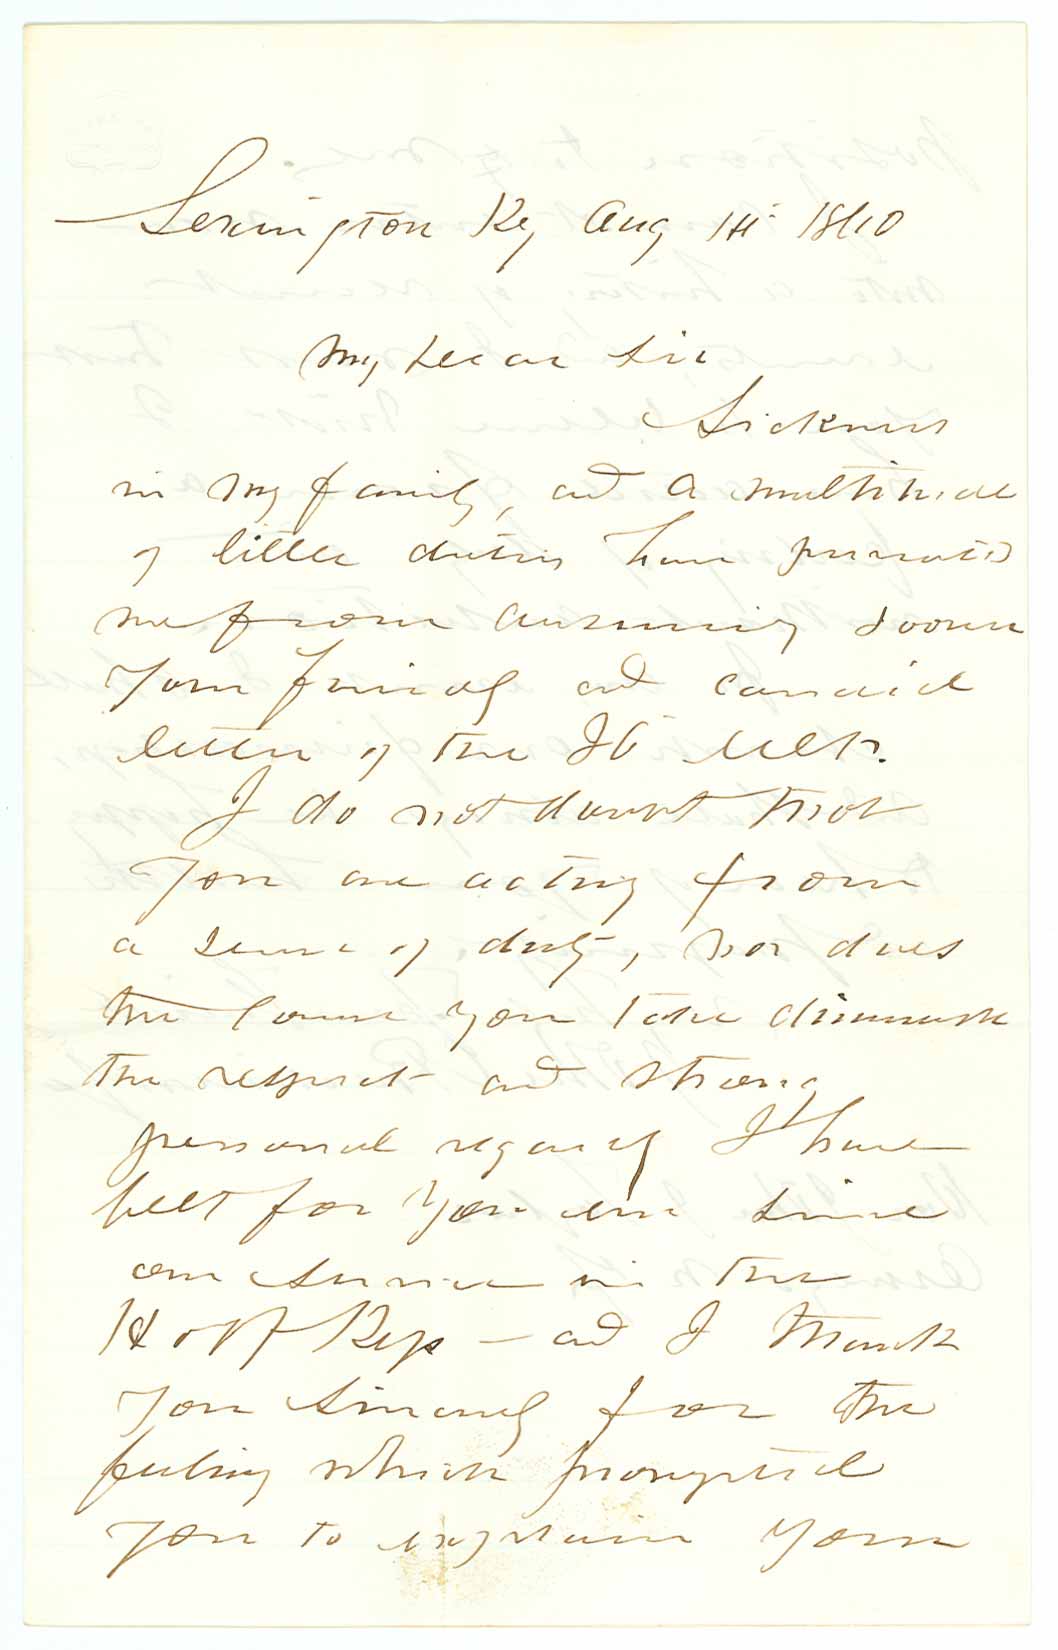 Lexington Ky Aug 14th 1860
My Dear Sir
Sickness
in my family, and a multitude
of little duties have prevented
me from answering sooner
your friendly and candid
letter of the 26 Ult.
I do not doubt that
you are acting from
a sense of duty, nor does
the course you take diminish
the respect and strong
personal regard I have
felt for you ever since
our service in the
H of Reps — and I thank
you sincerely for the
feeling which prompted
you to explain your